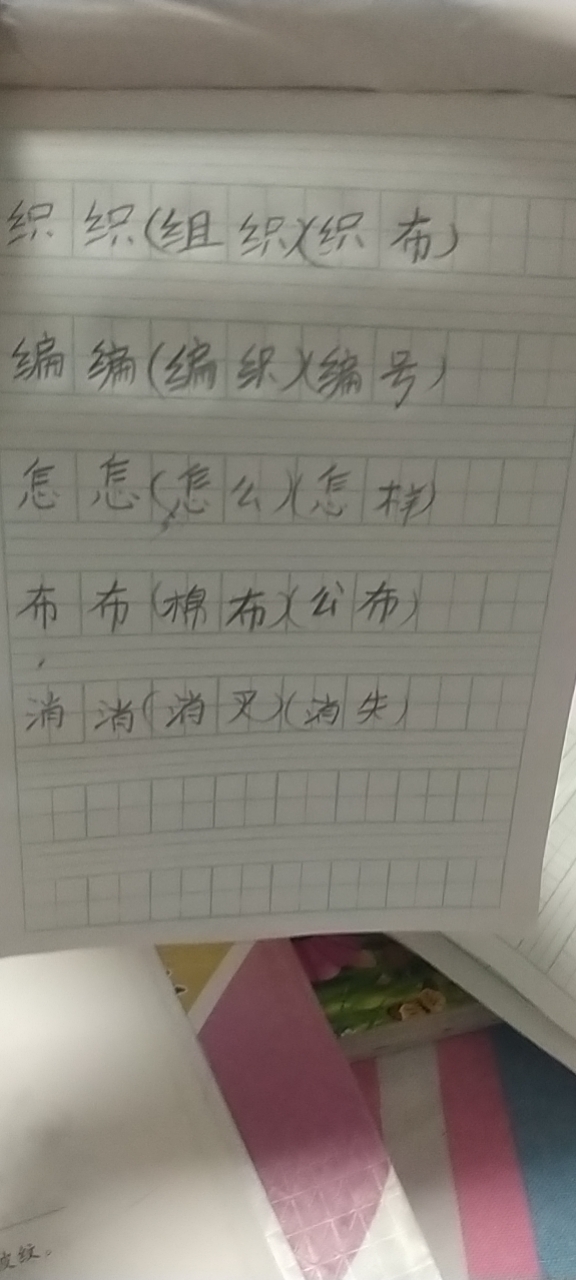 织织(组织)(织布)
编编(编织)(编号)
怎怎(怎么)(怎样)
布布(棉布)(公布)
消消(消叉)(消失)
纹。